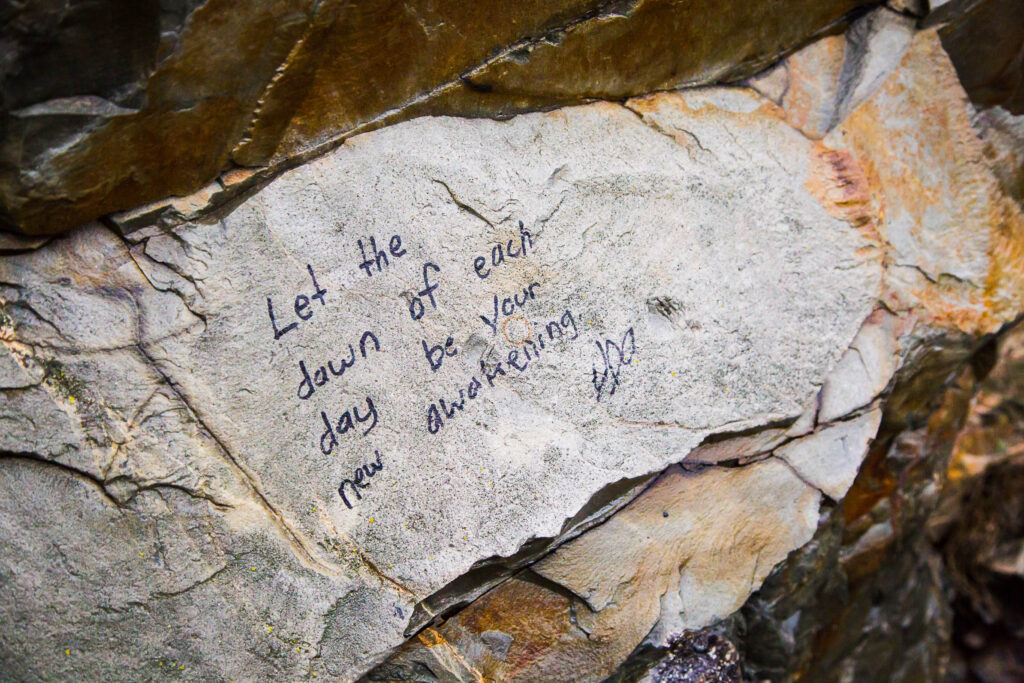 Let the
dawn of each
day be your
new awakening.